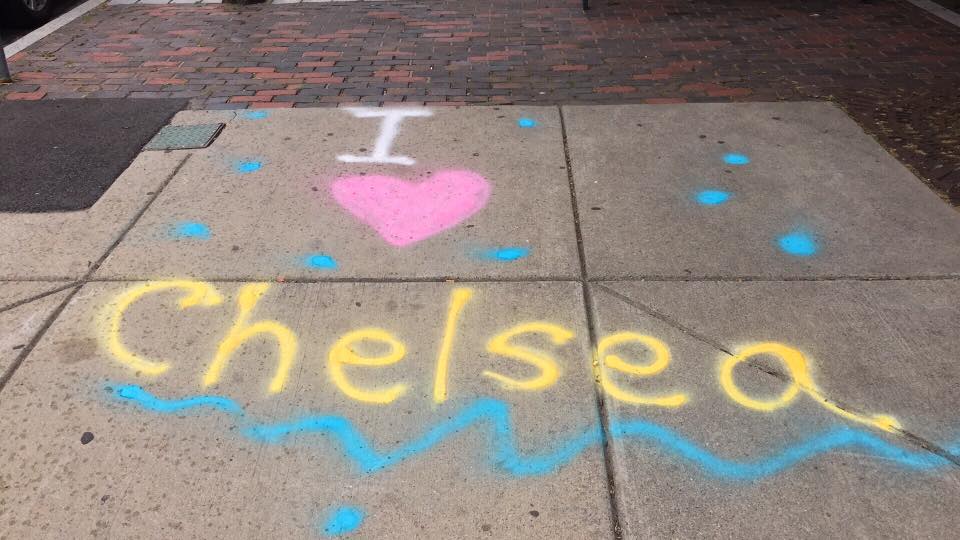 I
Chelsea